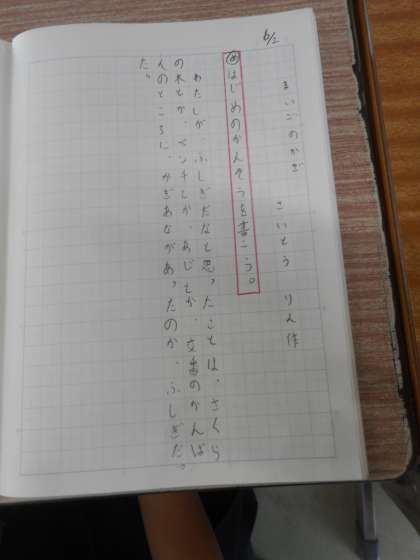 6/2
まいごのかぎ さいとう りん作
めはじめのかんそうを書こう。
わたしが、ふしぎだなと思ったことは、さくら
の木とか、ベンチとか、あじとか、交番のかんば
んのところに、かぎあながあったのが、ふしぎだ。
た。